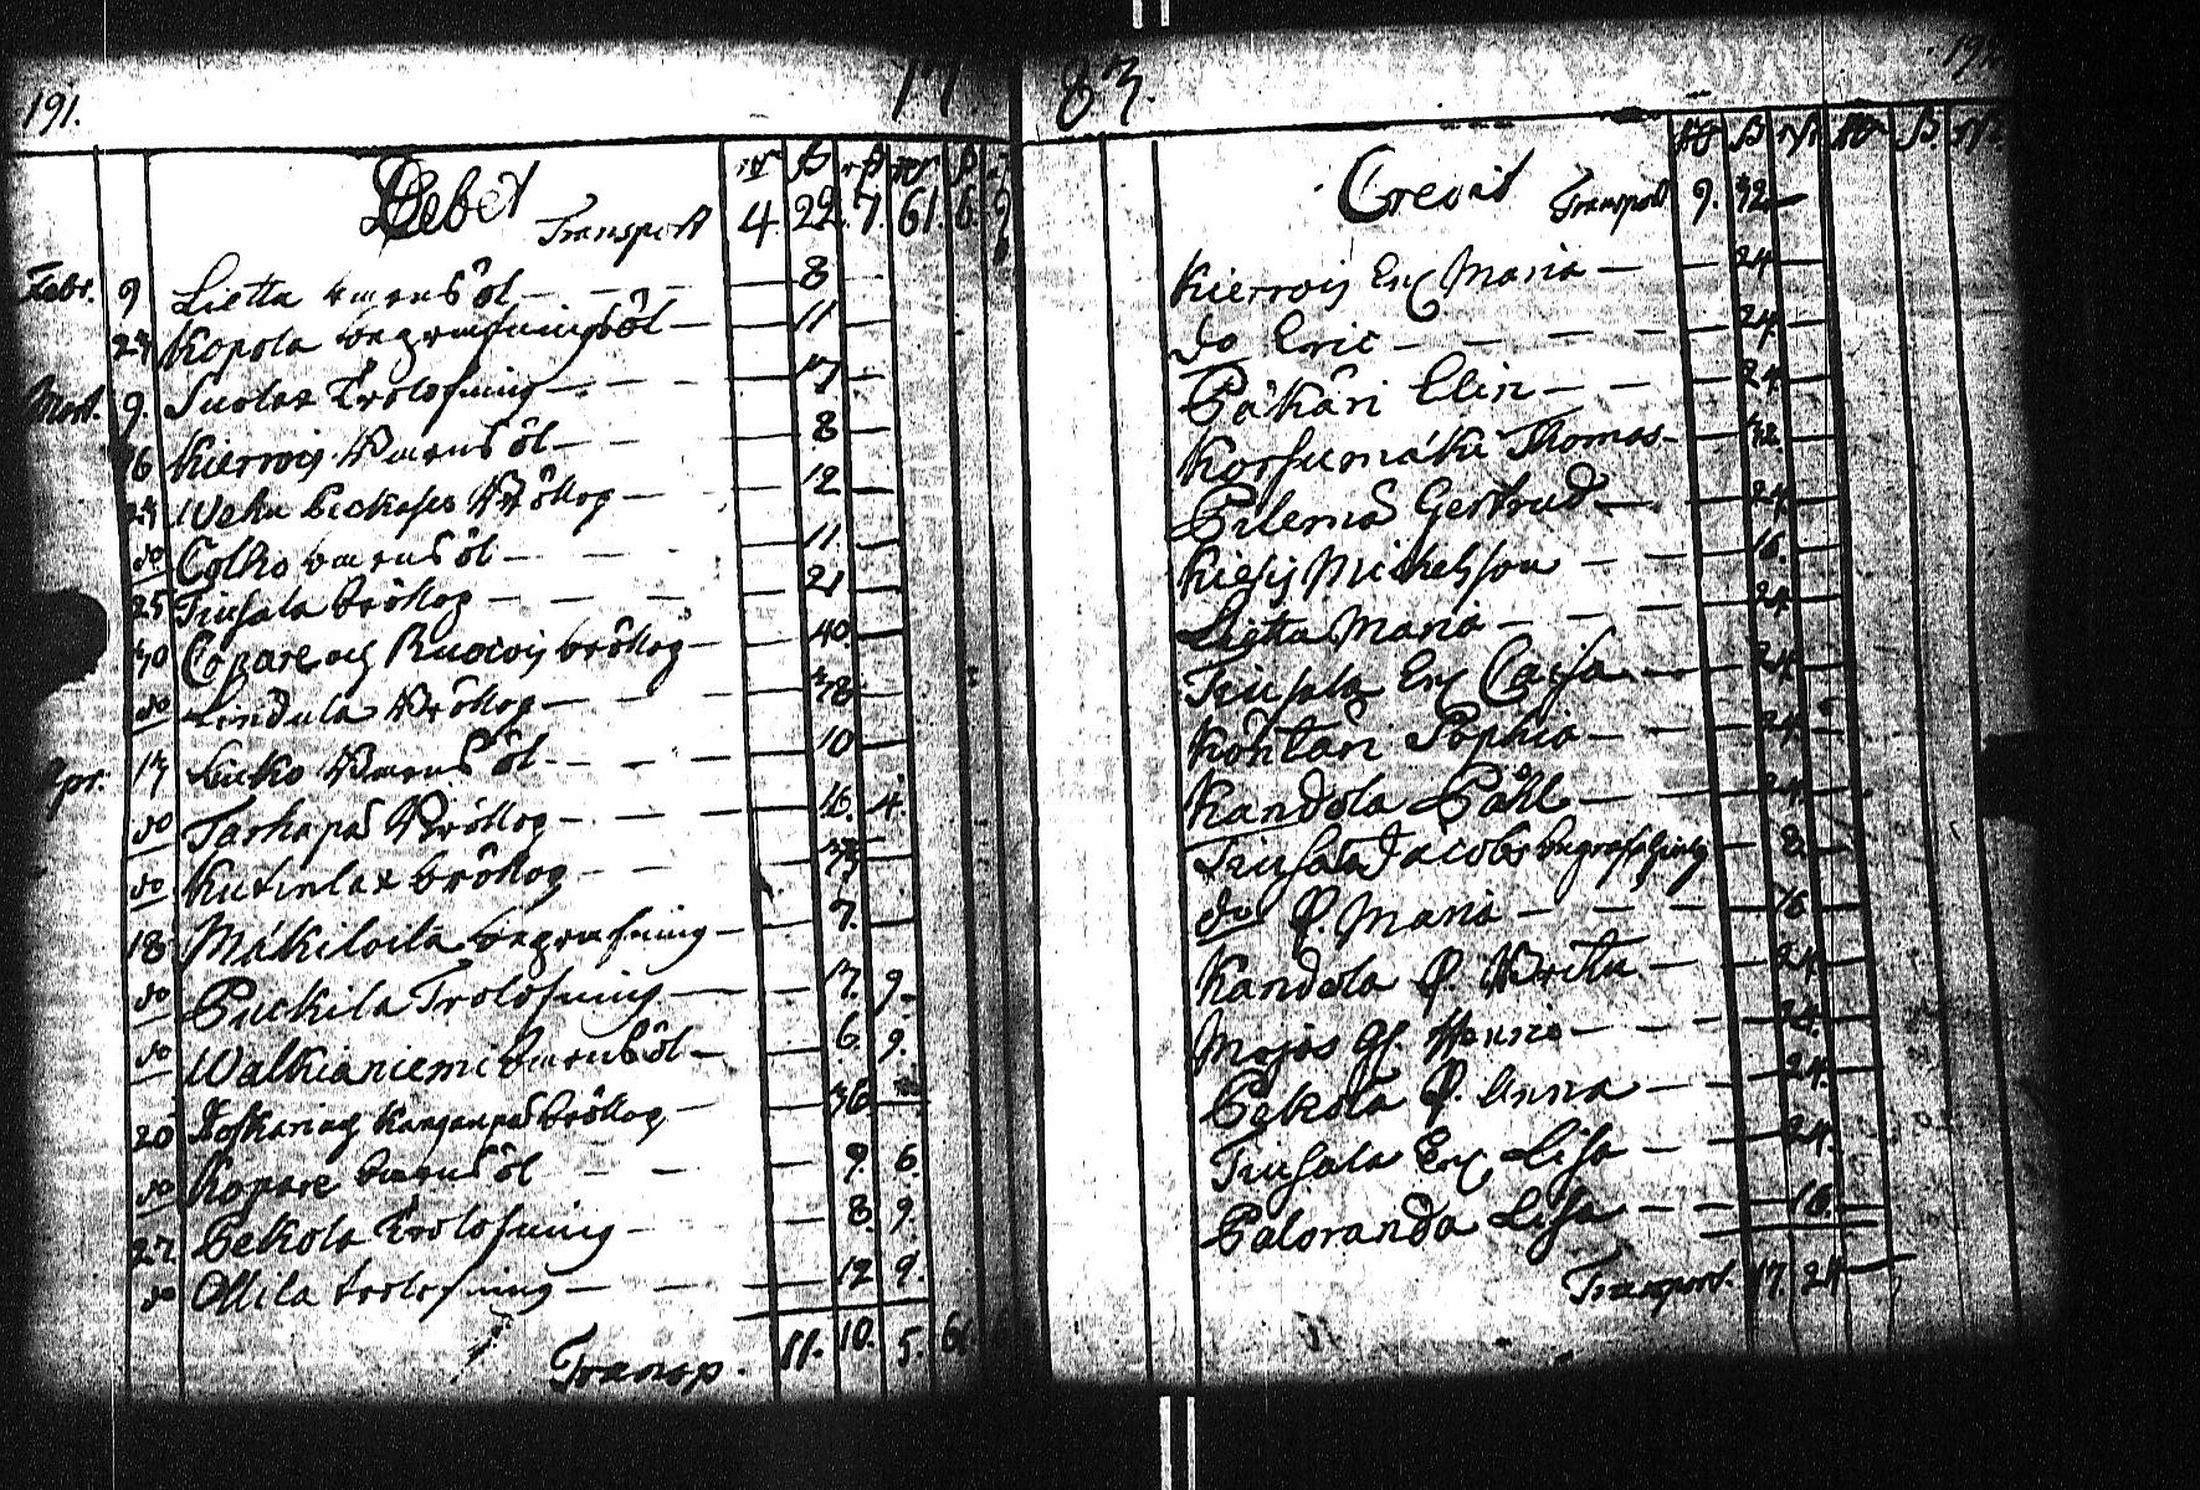 191. 17
Debet
Transport 4. 22. 7. 61. 6. 9
Febr. 9 Lietta barns öl - - - 8 -
24 Kopola begrafnings öl - 11 -
Mart. 9. Suolax Trolofning - - - 17 -
16 Kierrois Barns öl - - 8 -
24 Weku Beckases Bröllop - - 12 -
do Colho barns öl - - - 11. -
25 Tiusala bröllop - - - 21 -
30 Copare och Ruocois bröllop - 40. -
do Lindula Bröllop - - - 38 -
Apr. 17 Lucko Barns öl - - - 10 -
do Tarhapä Bröllop - - - 16. 4.
do Kuxinlax bröllop - - 33 -
18 Mäkiloila begrafning - - 7. -
do Puckila Trolofning - - 17. 9.
do Walkianiemi barns öl - - 6. 9.
20 och Kanganpä bröllop - 36 -
do Kopare barns öl - - - 9. 6.
27 Pekola Trolofning - - 8. 9.
do Ollila trolofning - - - 12 9.
Transp. 11. 10. 5. 61.
83.
Credit
Transport 9. 32. -
Kierrois Enk Maria - - 24 -
do Eric - - - - 24. -
Päkäri Elin - - 24 -
Korsumäki Thomas - - 32. -
Pilemä Gertrud - - 24. -
Kiesis Michelsson - - 16. -
Lietta Maria - - 24. -
Tiusala Enk Caisa - - 24. -
Köntäri Sophia - - 24. -
Kandola Påhl - - 24. -
Tiusala Jacobs - 8. -
do P. Maria - - - 16 -
Kandola P. Britta - - 24. -
Mojas Gl. Henric - - - 24. -
Pekola P. Anna - - 24. -
Tiusala Enk Lisa - - 24. -
Paloranda Lisa - - - 16. -
Transport. 17. 24 -